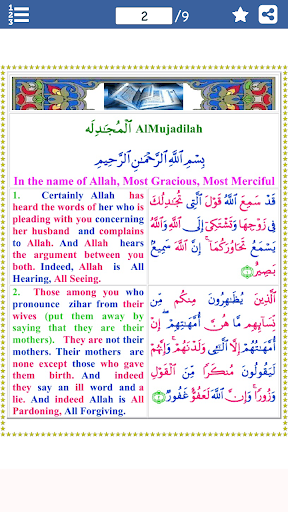 1
2
3
2
/9
ٱلْمُجَٰدِلَه AlMujadilah
بِسْمِ ٱللَّهِ ٱلرَّحْمَٰنِ ٱلرَّحِيمِ
In the name of Allah, Most Gracious, Most Merciful
1. Certainly Allah has
heard the words of her who is
pleading with you concerning
her husband and complains
to Allah. And Allah hears
the argument between you
both. Indeed, Allah is All
Hearing, All Seeing.
قَدْ سَمِعَ ٱللَّهُ قَوْلَ ٱلَّتِى تُجَٰدِلُكَ
فِى زَوْجِهَا وَتَشْتَكِىٓ إِلَى ٱللَّهِ وَٱللَّهُ
يَسْمَعُ تَحَاوُرَكُمَآ ۚ إِنَّ ٱللَّهَ سَمِيعٌۢ
بَصِيرٌ ﴿١﴾
2. Those among you who
pronounce zihar from their
wives (put them away by
saying that they are their
mothers). They are not their
mothers. Their mothers are
none except those who gave
them birth. And indeed
they say an ill word and a
lie. And indeed Allah is All
Pardoning, All Forgiving.
ٱلَّذِينَ يُظَٰهِرُونَ مِنكُم مِّن
نِّسَآئِهِم مَّا هُنَّ أُمَّهَٰتِهِمْ ۖ إِنْ
أُمَّهَٰتُهُمْ إِلَّا ٱلَّٰٓـِٔى وَلَدْنَهُمْ ۚ وَإِنَّهُمْ
لَيَقُولُونَ مُنكَرًا مِّنَ ٱلْقَوْلِ
وَزُورًا ۚ وَإِنَّ ٱللَّهَ لَعَفُوٌّ غَفُورٌ ﴿٢﴾